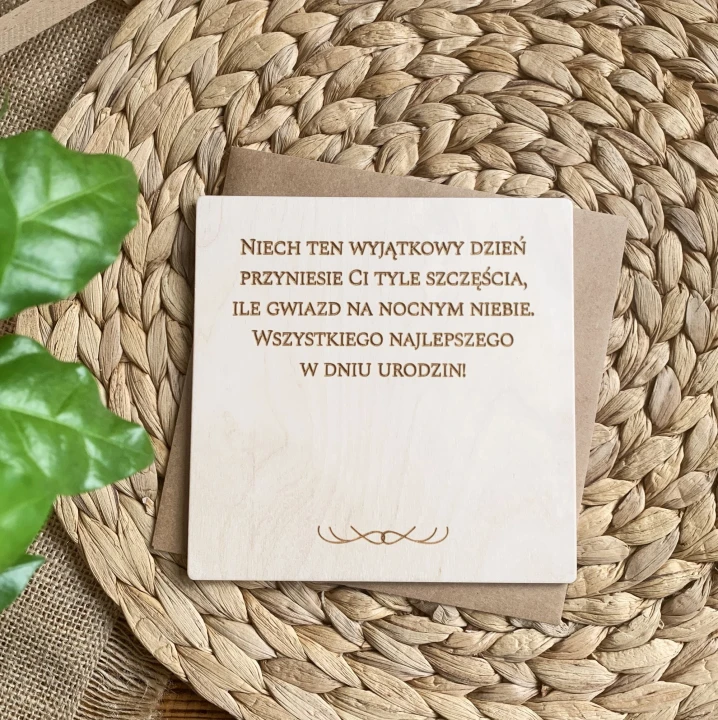 Niech ten wyjątkowy dzień
przyniesie Ci tyle szczęścia,
ile gwiazd na nocnym niebie.
Wszystkiego najlepszego
w dniu urodzin!